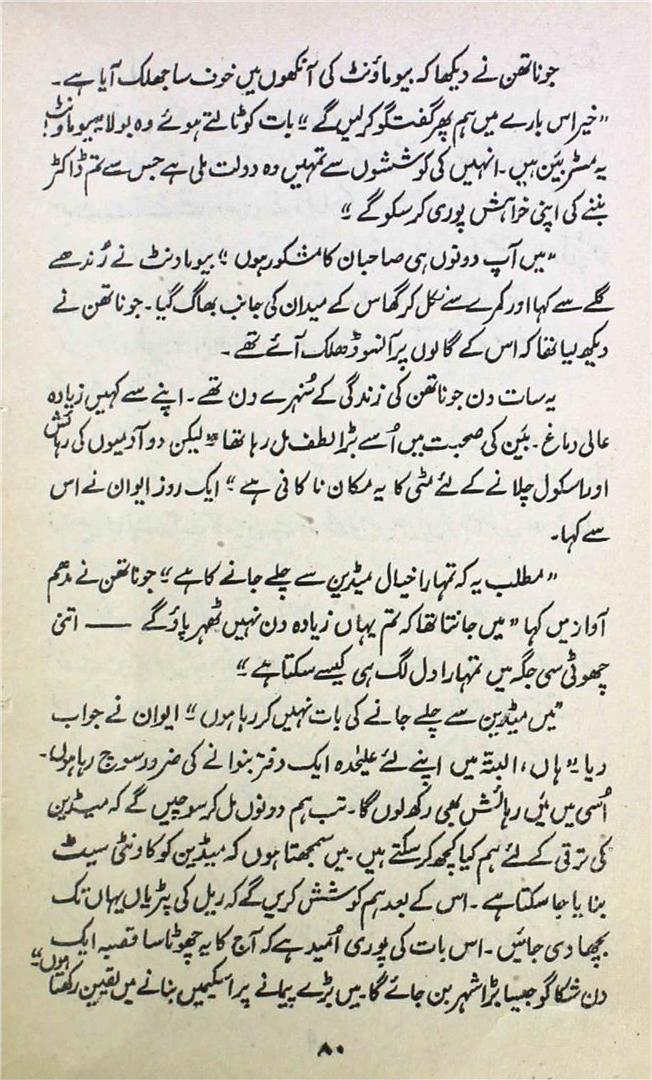 جوناتھن نے دیکھا کہ بیوماؤنٹ کی آنکھوں میں خوف سا جھلک آیا ہے۔
”خیر اس بارے میں ہم پھر گفتگو کر لیں گے“ بات کو ٹالتے ہوئے وہ بولا ”بیوماؤنٹ!
یہ مسٹر بئین ہیں۔ انہیں کی کوششوں سے تمہیں وہ دولت ملی ہے جس سے تم ڈاکٹر
بننے کی اپنی خواہش پوری کر سکو گے“
”میں آپ دونوں ہی صاحبان کا مشکور ہوں“ بیوماونٹ نے رُندھے
گلے سے کہا اور کمرے سے نکل کر گھاس کے میدان کی جانب بھاگ گیا۔ جوناتھن نے
دیکھ لیا تھا کہ اس کے گالوں پر آنسو ڈھلک آئے تھے۔
یہ سات دن جوناتھن کی زندگی کے سُنہرے دن تھے۔ اپنے سے کہیں زیادہ
عالی دماغ۔ بئین کی صحبت میں اُسے بڑا لطف مل رہا تھا ”لیکن دو آدمیوں کی رہائش
اور اسکول چلانے کے لئے مٹی کا یہ مکان ناکافی ہے“ ایک روز ایوان نے اس
سے کہا۔
”مطلب یہ کہ تمہارا خیال میڈین سے چلے جانے کا ہے“ جوناتھن نے مدھم
آواز میں کہا ”میں جانتا تھا کہ تم یہاں زیادہ دن نہیں ٹھہر پاؤ گے —— اتنی
چھوٹی سی جگہ میں تمہارا دل لگ ہی کیسے سکتا ہے“
”میں میڈین سے چلے جانے کی بات نہیں کر رہا ہوں“ ایوان نے جواب
دیا ”ہاں، البتہ میں اپنے لئے علیحدہ ایک دفتر بنوانے کی ضرور سوچ رہا ہوں۔
اُسی میں میں رہائش بھی رکھ لوں گا۔ تب ہم دونوں مل کر سوچیں گے کہ میڈین
کی ترقی کے لئے ہم کیا کچھ کر سکتے ہیں۔ میں سمجھتا ہوں کہ میڈین کو کاونٹی سیٹ
بنایا جا سکتا ہے۔ اس کے بعد ہم کوشش کریں گے کہ ریل کی پٹریاں یہاں تک
بچھا دی جائیں۔ اس بات کی پوری اُمید ہے کہ آج کا یہ چھوٹا سا قصبہ ایک
دن شکاگو جیسا بڑا شہر بن جائے گا۔ میں بڑے پیمانے پر اسکیمیں بنانے میں یقین رکھتا ہوں“
۸۰